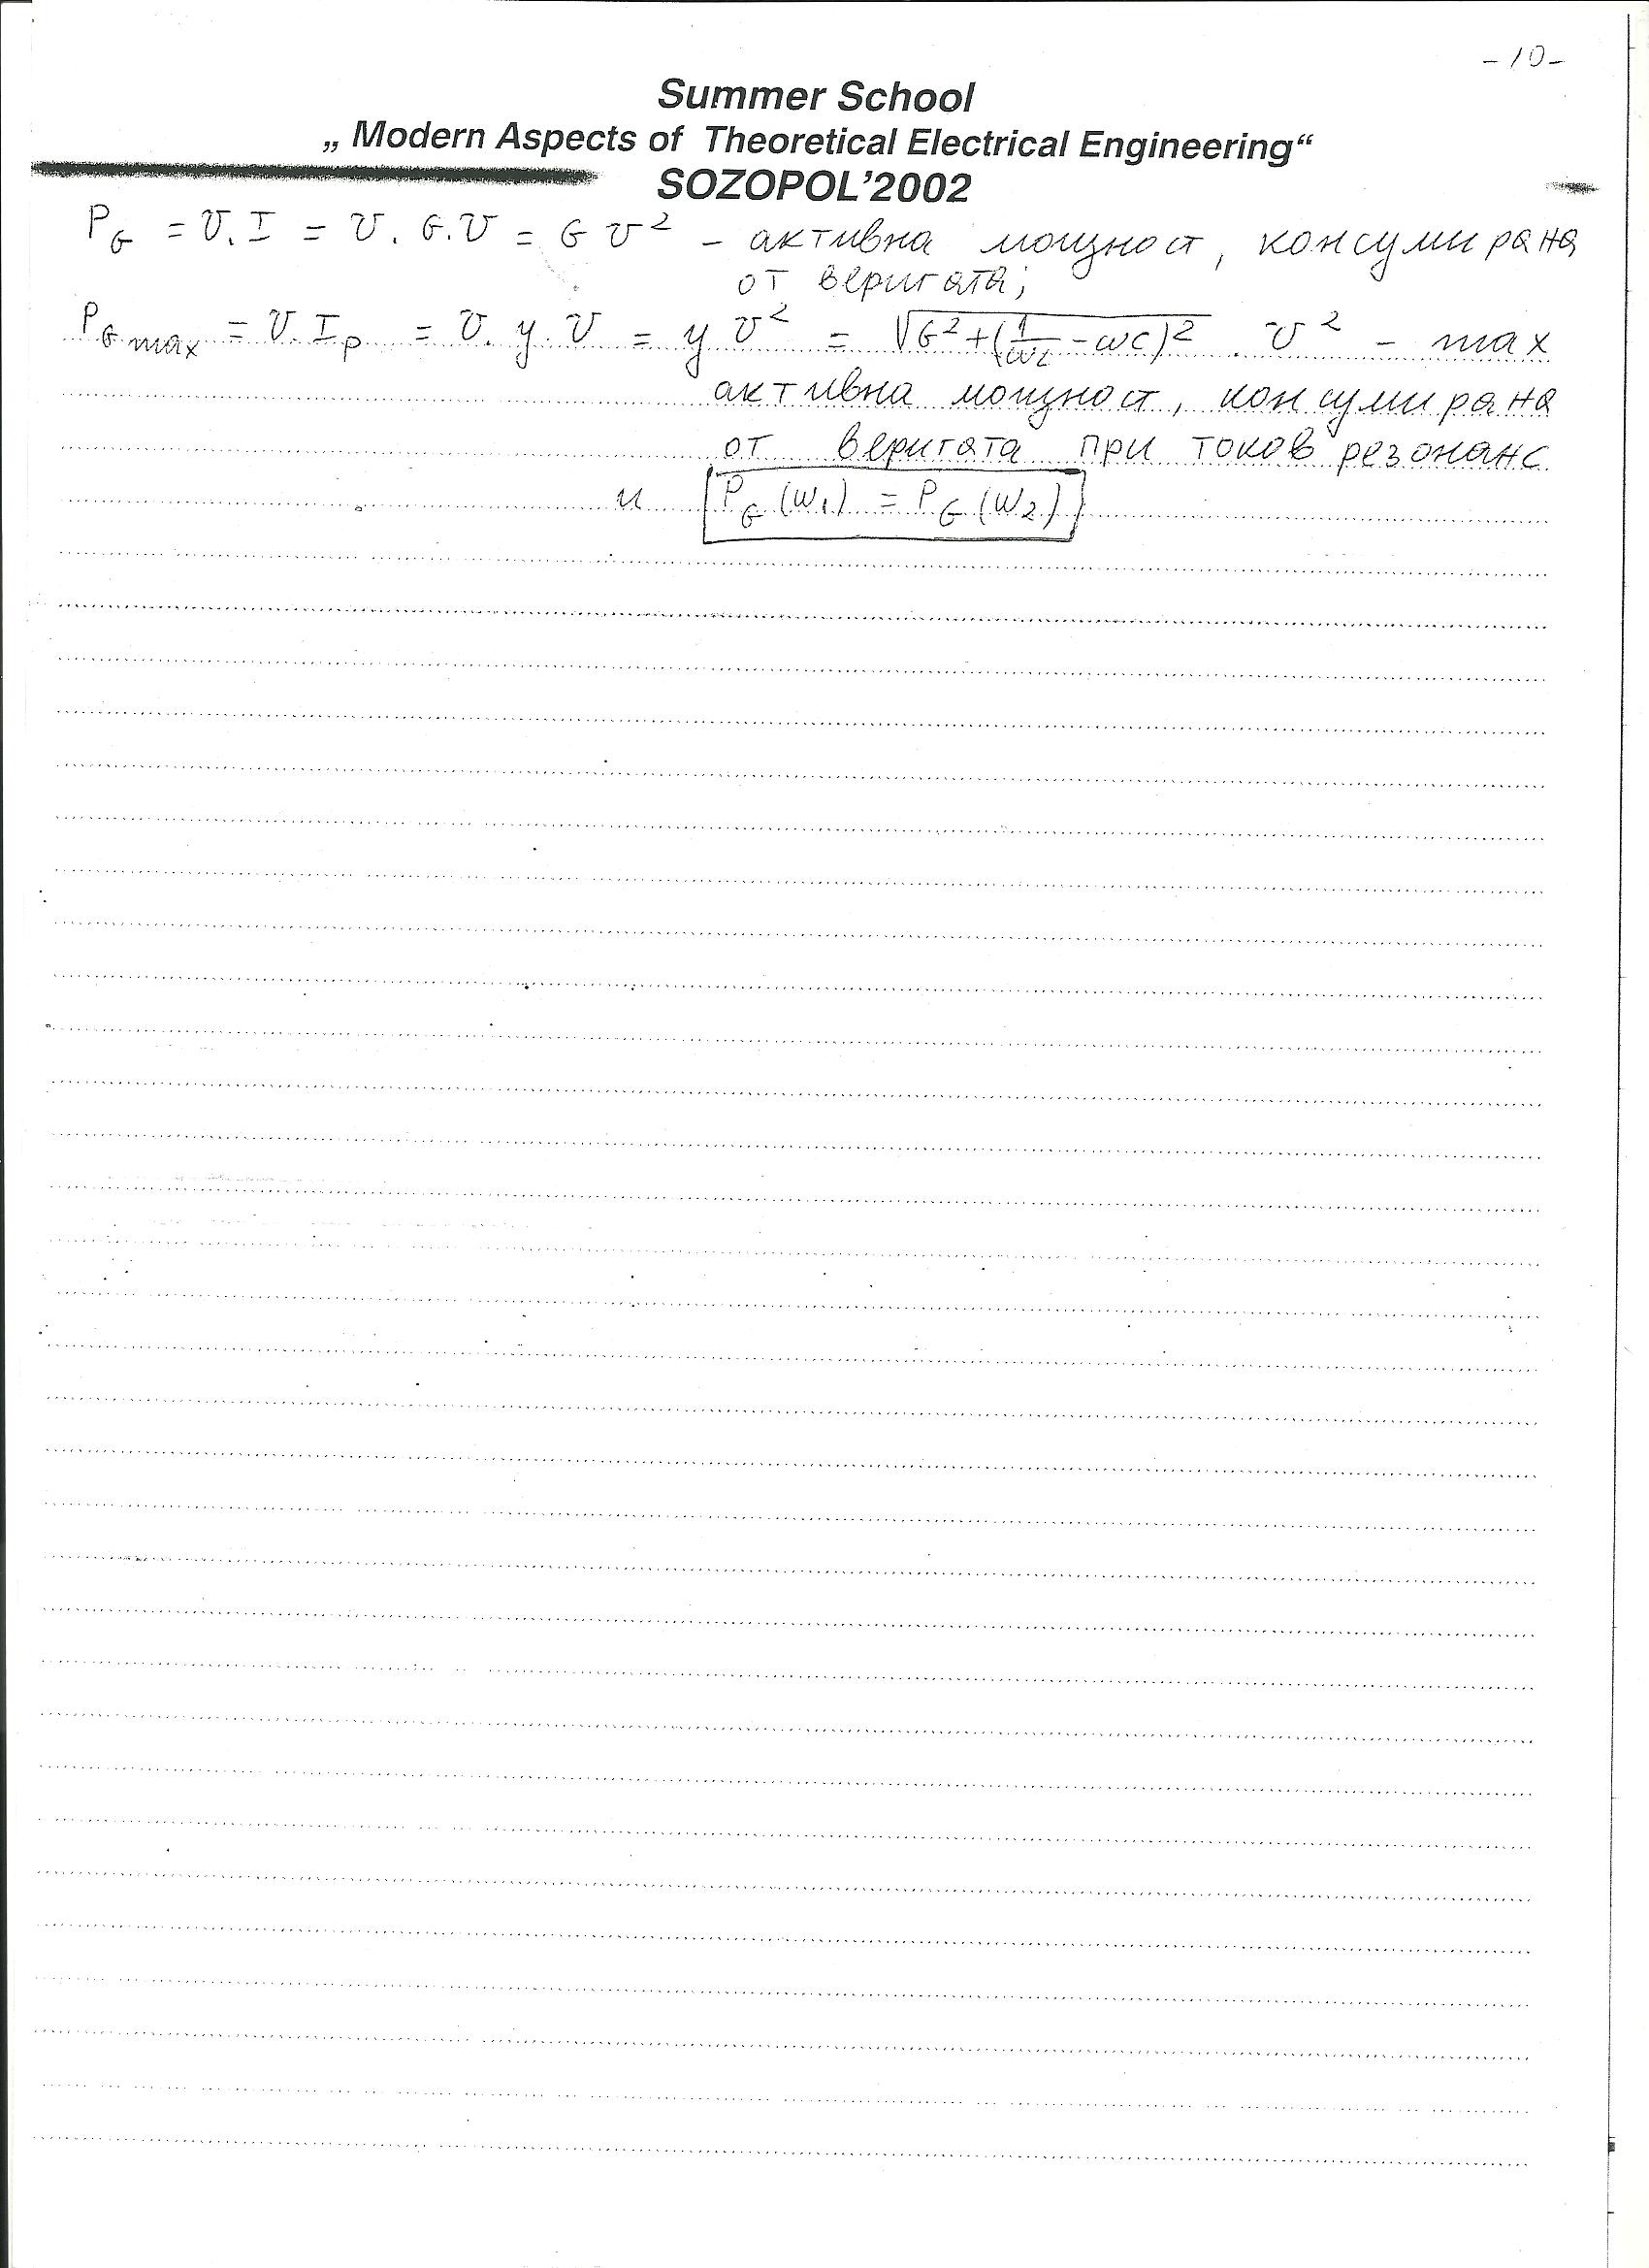 -10-
Summer School
„ Modern Aspects of Theoretical Electrical Engineering“
SOZOPOL’2002
P_G = U.I = U.G.U = G U² - активна мощност, консумирана
от веригата;
P_G max = U.I_p = U.y.U = y U² = √(G²+(1/ωL - ωC)²) . U² - max
активна мощност, консумирана
от веригата при токов резонанс
и P_G(ω₁) = P_G(ω₂)